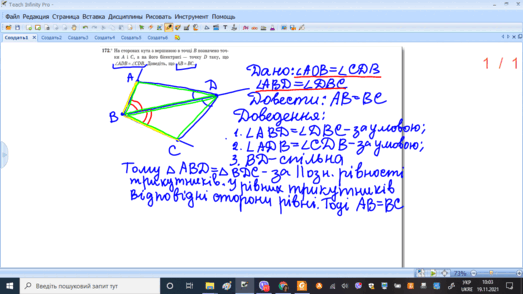 Teach Infinity Pro -
Файл Редакция Страница Вставка Дисциплины Рисовать Инструмент Помощь
Создать1 Создать2 Создать3 Создать4 Создать5 Создать6
172.° На сторонах кута з вершиною в точці B позначено точ-
ки A і C, а на його бісектрисі — точку D таку, що
∠ADB = ∠CDB. Доведіть, що AB = BC.
1 / 1
A
D
B
C
Дано: ∠AOB=∠CDB
∠ABD=∠DBC
Довести: AB=BC
Доведення:
1. ∠ABD=∠DBC-за умовою;
2. ∠ADB=∠CDB-за умовою;
3. BD-спільна
Тому △ABD=△BDC-за II озн. рівності
трикутників. У рівних трикутників
відповідні сторони рівні. Тоді AB=BC
73%
Введіть пошуковий запит тут
УКР
UKRE
10:03
19.11.2021